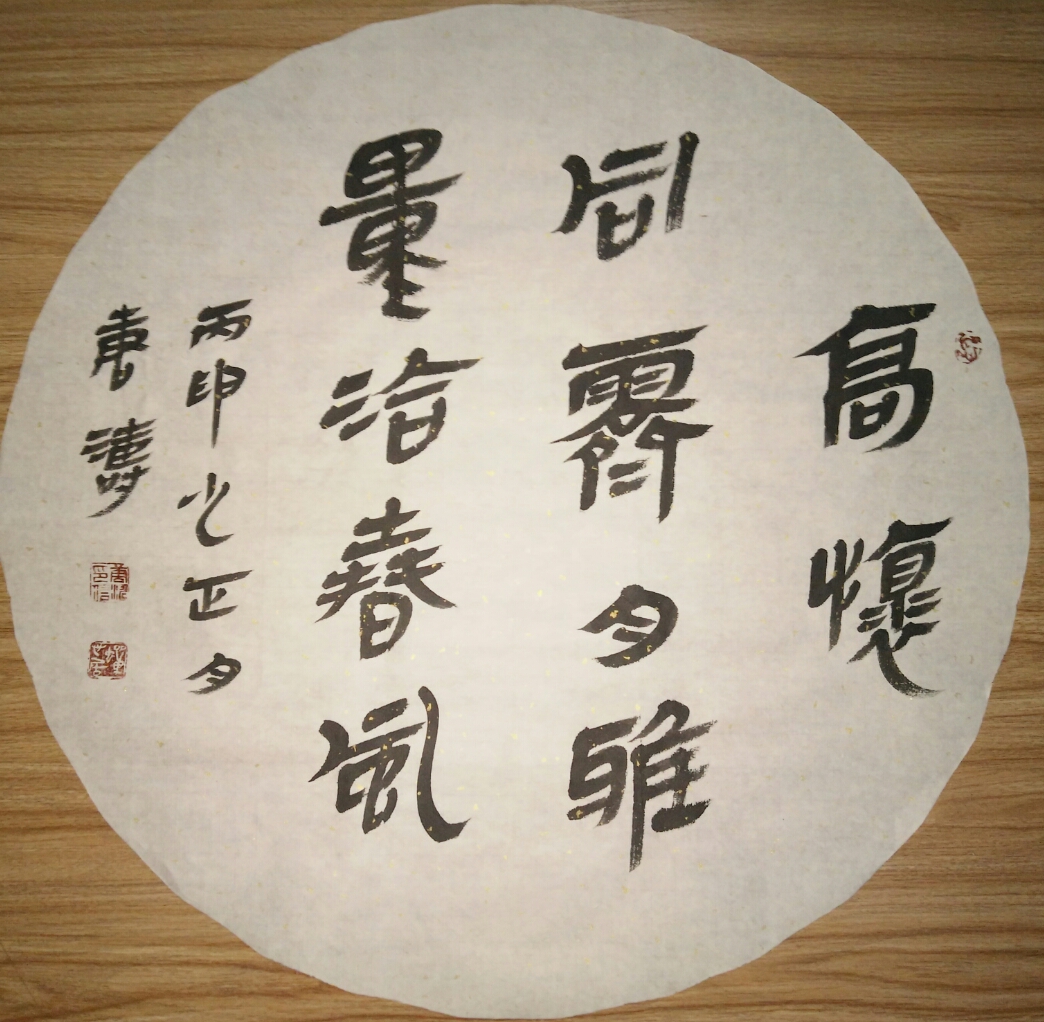 高懷
同霽月雅
量洽春風
丙申少正月
唐濤